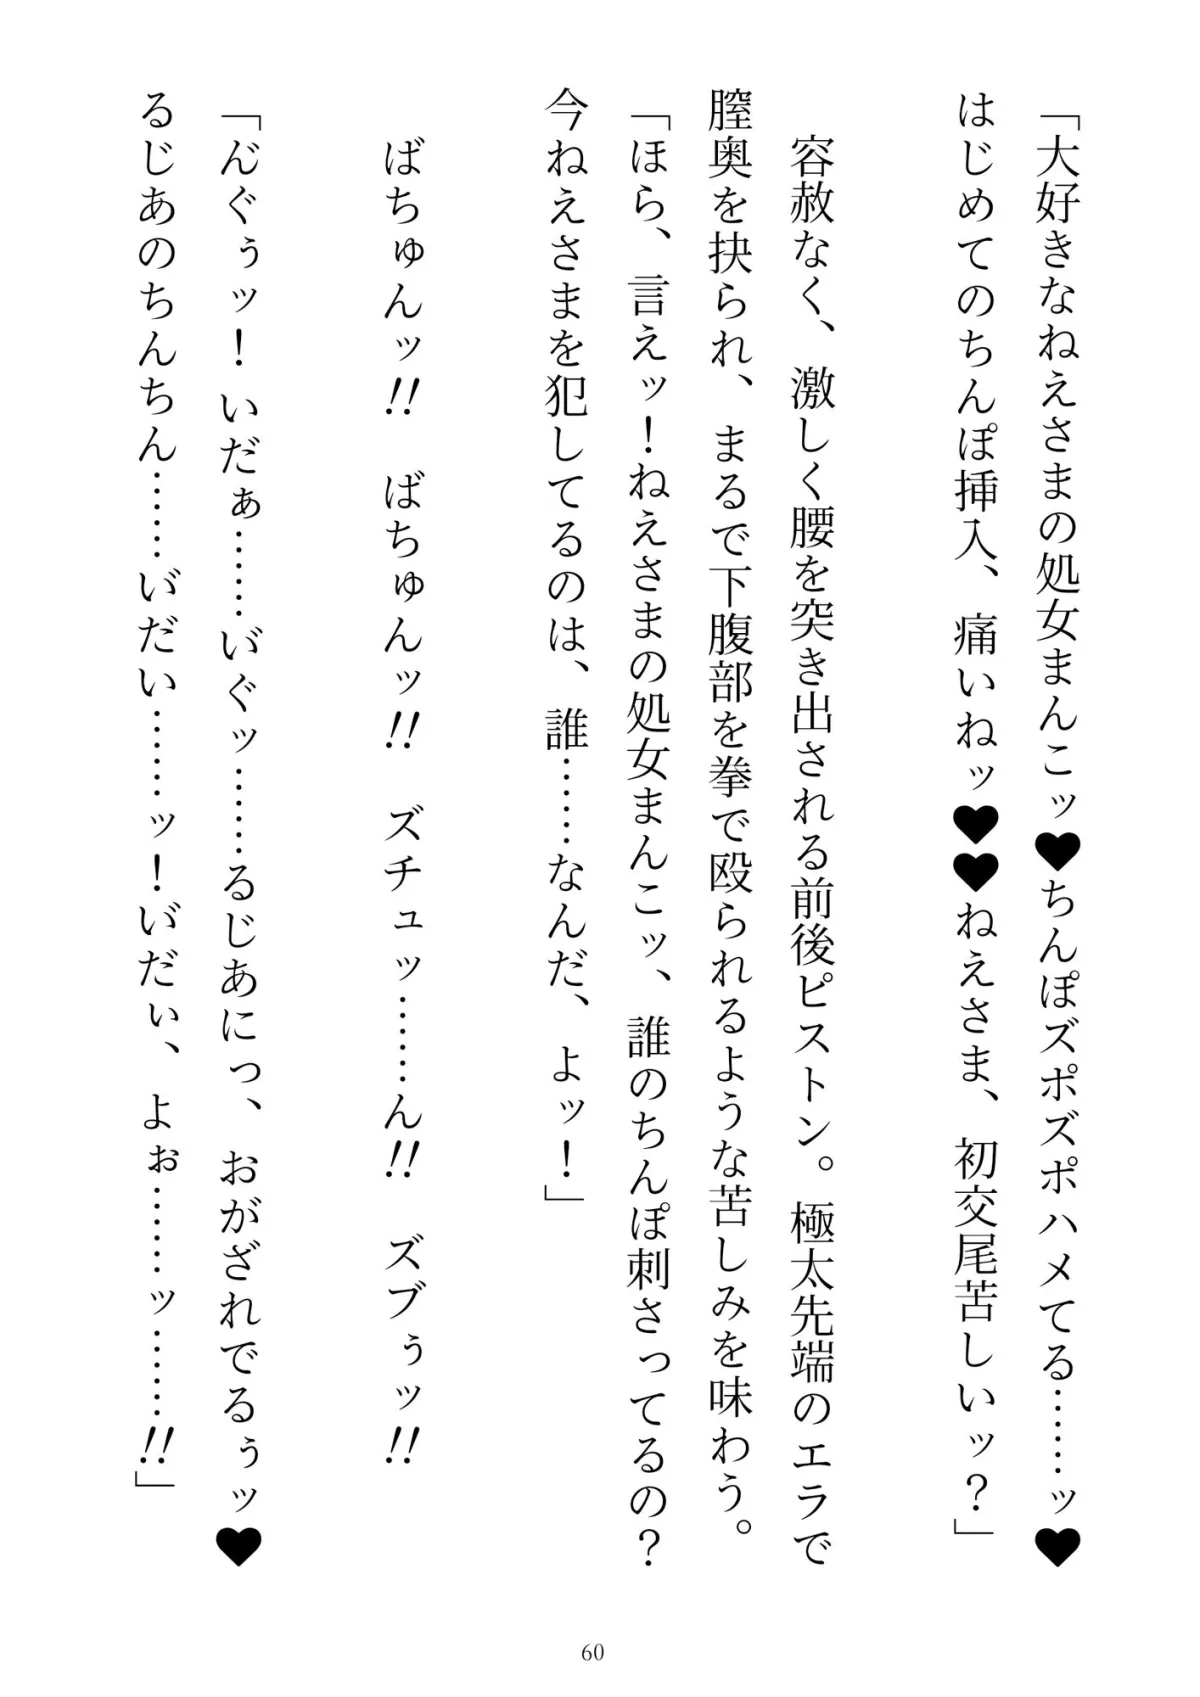 「大好きなねえさまの処女まんこッ♥ちんぽズポズポハメてる……ッ♥
はじめてのちんぽ挿入、痛いねッ♥♥ねえさま、初交尾苦しいッ？」
容赦なく、激しく腰を突き出される前後ピストン。極太先端のエラで
膣奥を抉られ、まるで下腹部を拳で殴られるような苦しみを味わう。
「ほら、言えッ！ねえさまの処女まんこッ、誰のちんぽ刺さってるの？
今ねえさまを犯してるのは、誰……なんだ、よッ！」
ばちゅんッ!! ばちゅんッ!! ズチュッ……ん!! ズブぅッ!!
「ん゙ぐぅッ！いだぁ……い゙ぐッ……るじあにっ、おがざれでるぅッ♥
るじあのちんちん……い゙だい……ッ！い゙だぃ、よぉ……ッ……!!」
60